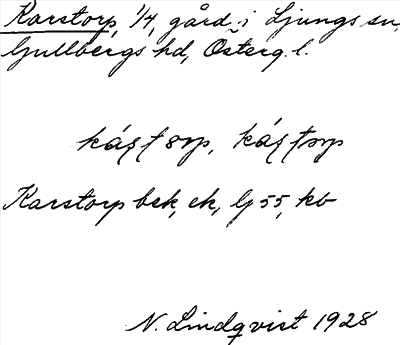 Karstorp, 1/4, gård i Ljungs sn,
Gullbergs hd, Österg. l.
Karstorp bsk, ek, lj 55, kb
N. Lindqvist 1928